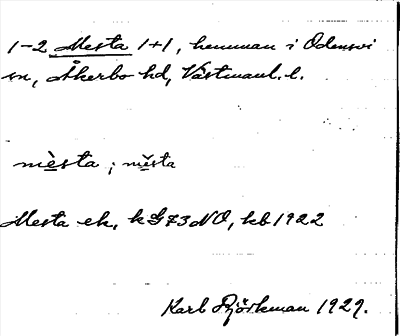 1-2 Mesta 1+1, hemman i Odensvi
sn, Åkerbo hd, Västmanl. l.
mèsta ; mèsta
Mesta ek, k G73NO, kb 1922
Karl Björkman 1929.